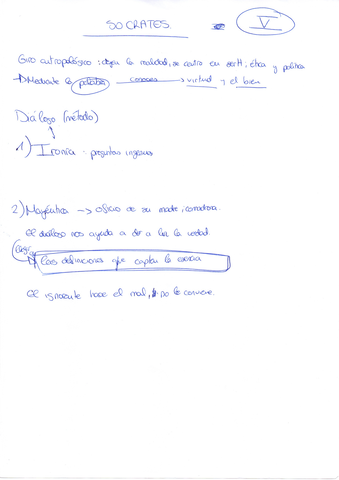 SOCRATES. V
Giro antropológico: dejan la realidad, se centra en serH, ética y política
Mediante la palabra conocer → virtud y el bien
Diálogo (método)
1) Ironía : preguntas ingenuas
2) Mayéutica → oficio de su madre, comadrona.
El diálogo nos ayuda a dar a luz la verdad
las definiciones que captan la esencia
El ignorante hace el mal, no le conviene.